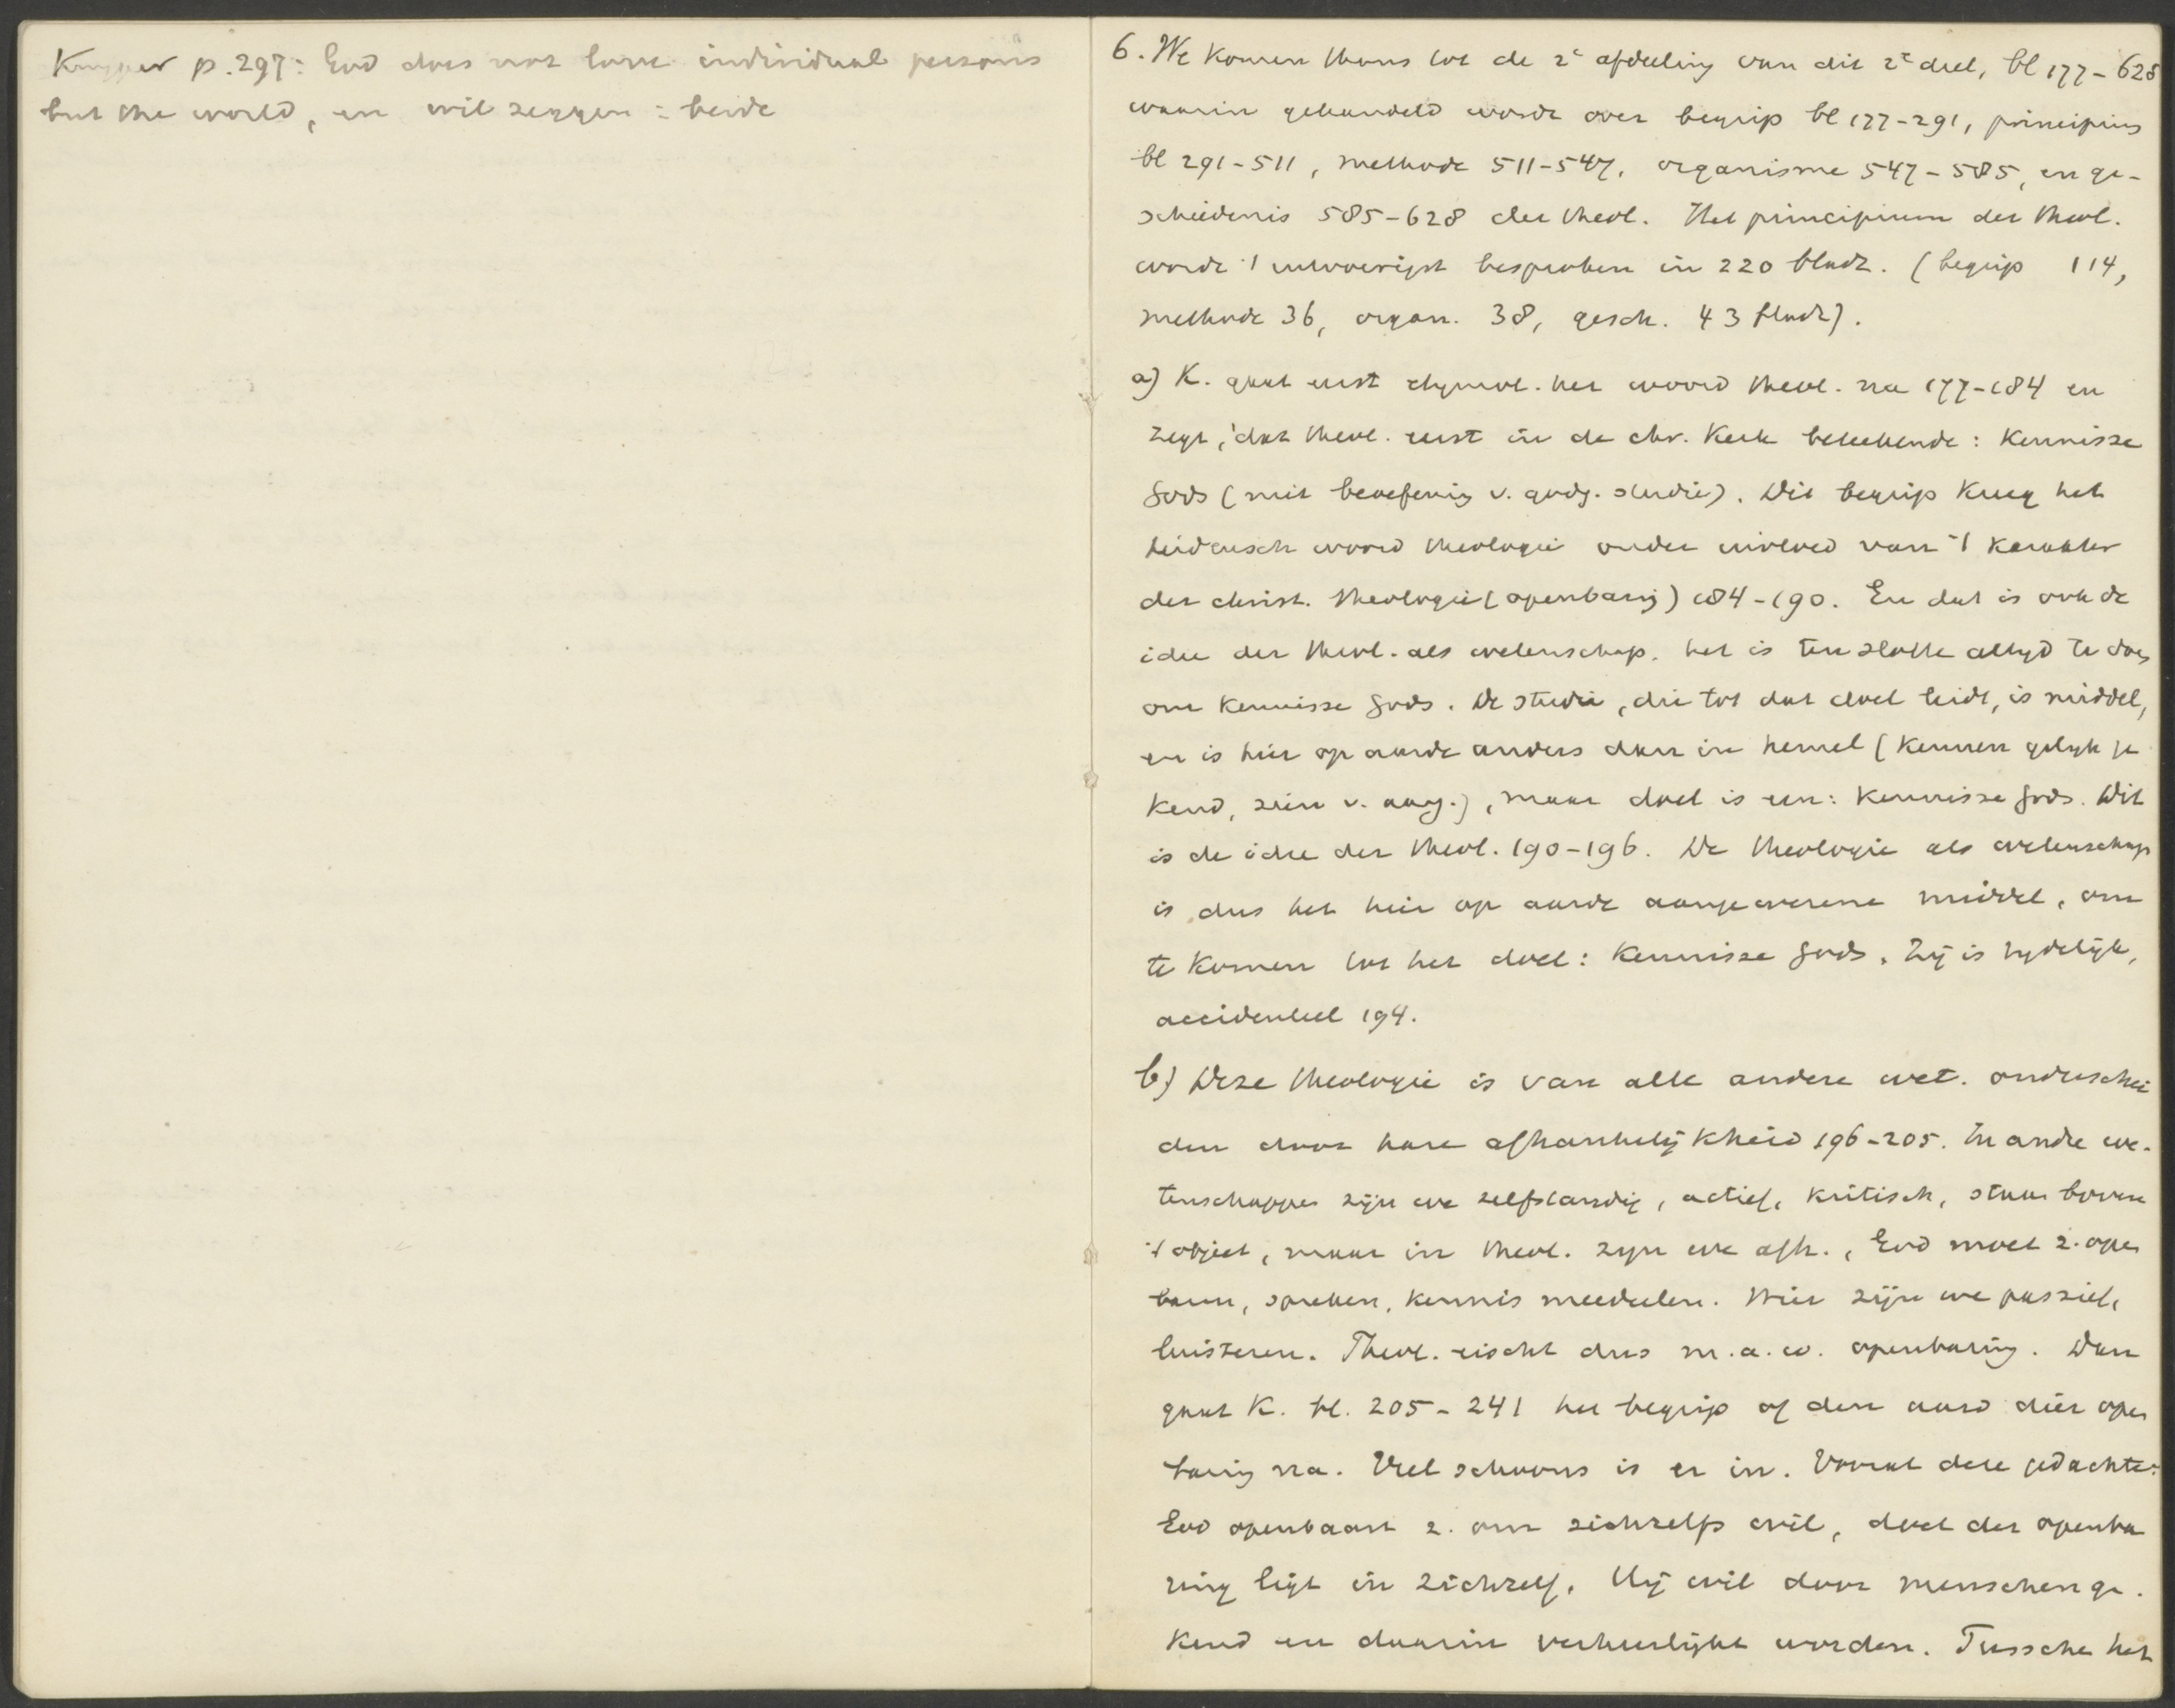 Kuyper p. 297: God does not love individual persons
but the world, en wil zeggen: beide
6. We komen thans tot de 2e afdeeling van dit 2e deel, bl 177-628
waarin gehandeld wordt over begrip bl 177-291, principium
bl 291-511, methode 511-547, organisme 547-585, en ge-
schiedenis 585-628 der theol. Het principium der theol.
wordt 't uitvoerigst besproken in 220 bladz. (begrip 114,
methode 36, organ. 38, gesch. 43 bladz).
a) K. gaat eerst etymol. het woord theol. na 177-184 en
zegt, dat theol. eerst in de chr. Kerk beteekende: Kennisse
Gods (niet beoefening v. godg. studie). Dit begrip kreeg het
heidensch woord theologie onder invloed van 't karakter
der christ. theologie (openbaring) 184-190. En dat is ook de
idee der theol. als wetenschap. het is ten slotte altyd te doen
om Kennisse Gods. De studie, die tot dat doel leidt, is middel,
en is hier op aarde anders dan in hemel (kennen gelyk ge
kend, zien v. aang.), maar doel is een: Kennisse Gods. Dit
is de idee der theol. 190-196. De theologie als wetenschap
is dus het hier op aarde aangewezene middel, om
te komen tot het doel: Kennisse Gods. Zij is tydelijk,
accidenteel 194.
b) Deze theologie is van alle andere wet. onderschei
den door hare afhankelijkheid 196-205. In andre we-
tenschappen zijn we zelfstandig, actief, kritisch, staan boven
't object, maar in theol. zyn we afh., God moet z. open
baren, spreken, kennis meedeelen. Hier zijn we passief,
luisteren. Theol. eischt dus m.a.w. openbaring. Dan
gaat K. bl. 205-241 het begrip of den aard dier open
baring na. Veel schoons is er in. Vooral deze gedachte:
God openbaart z. om zichzelfs wil, doel der openba
ring ligt in zichzelf. Hij wil door menschen ge-
kend en daarin verheerlijkt worden. Tussche het